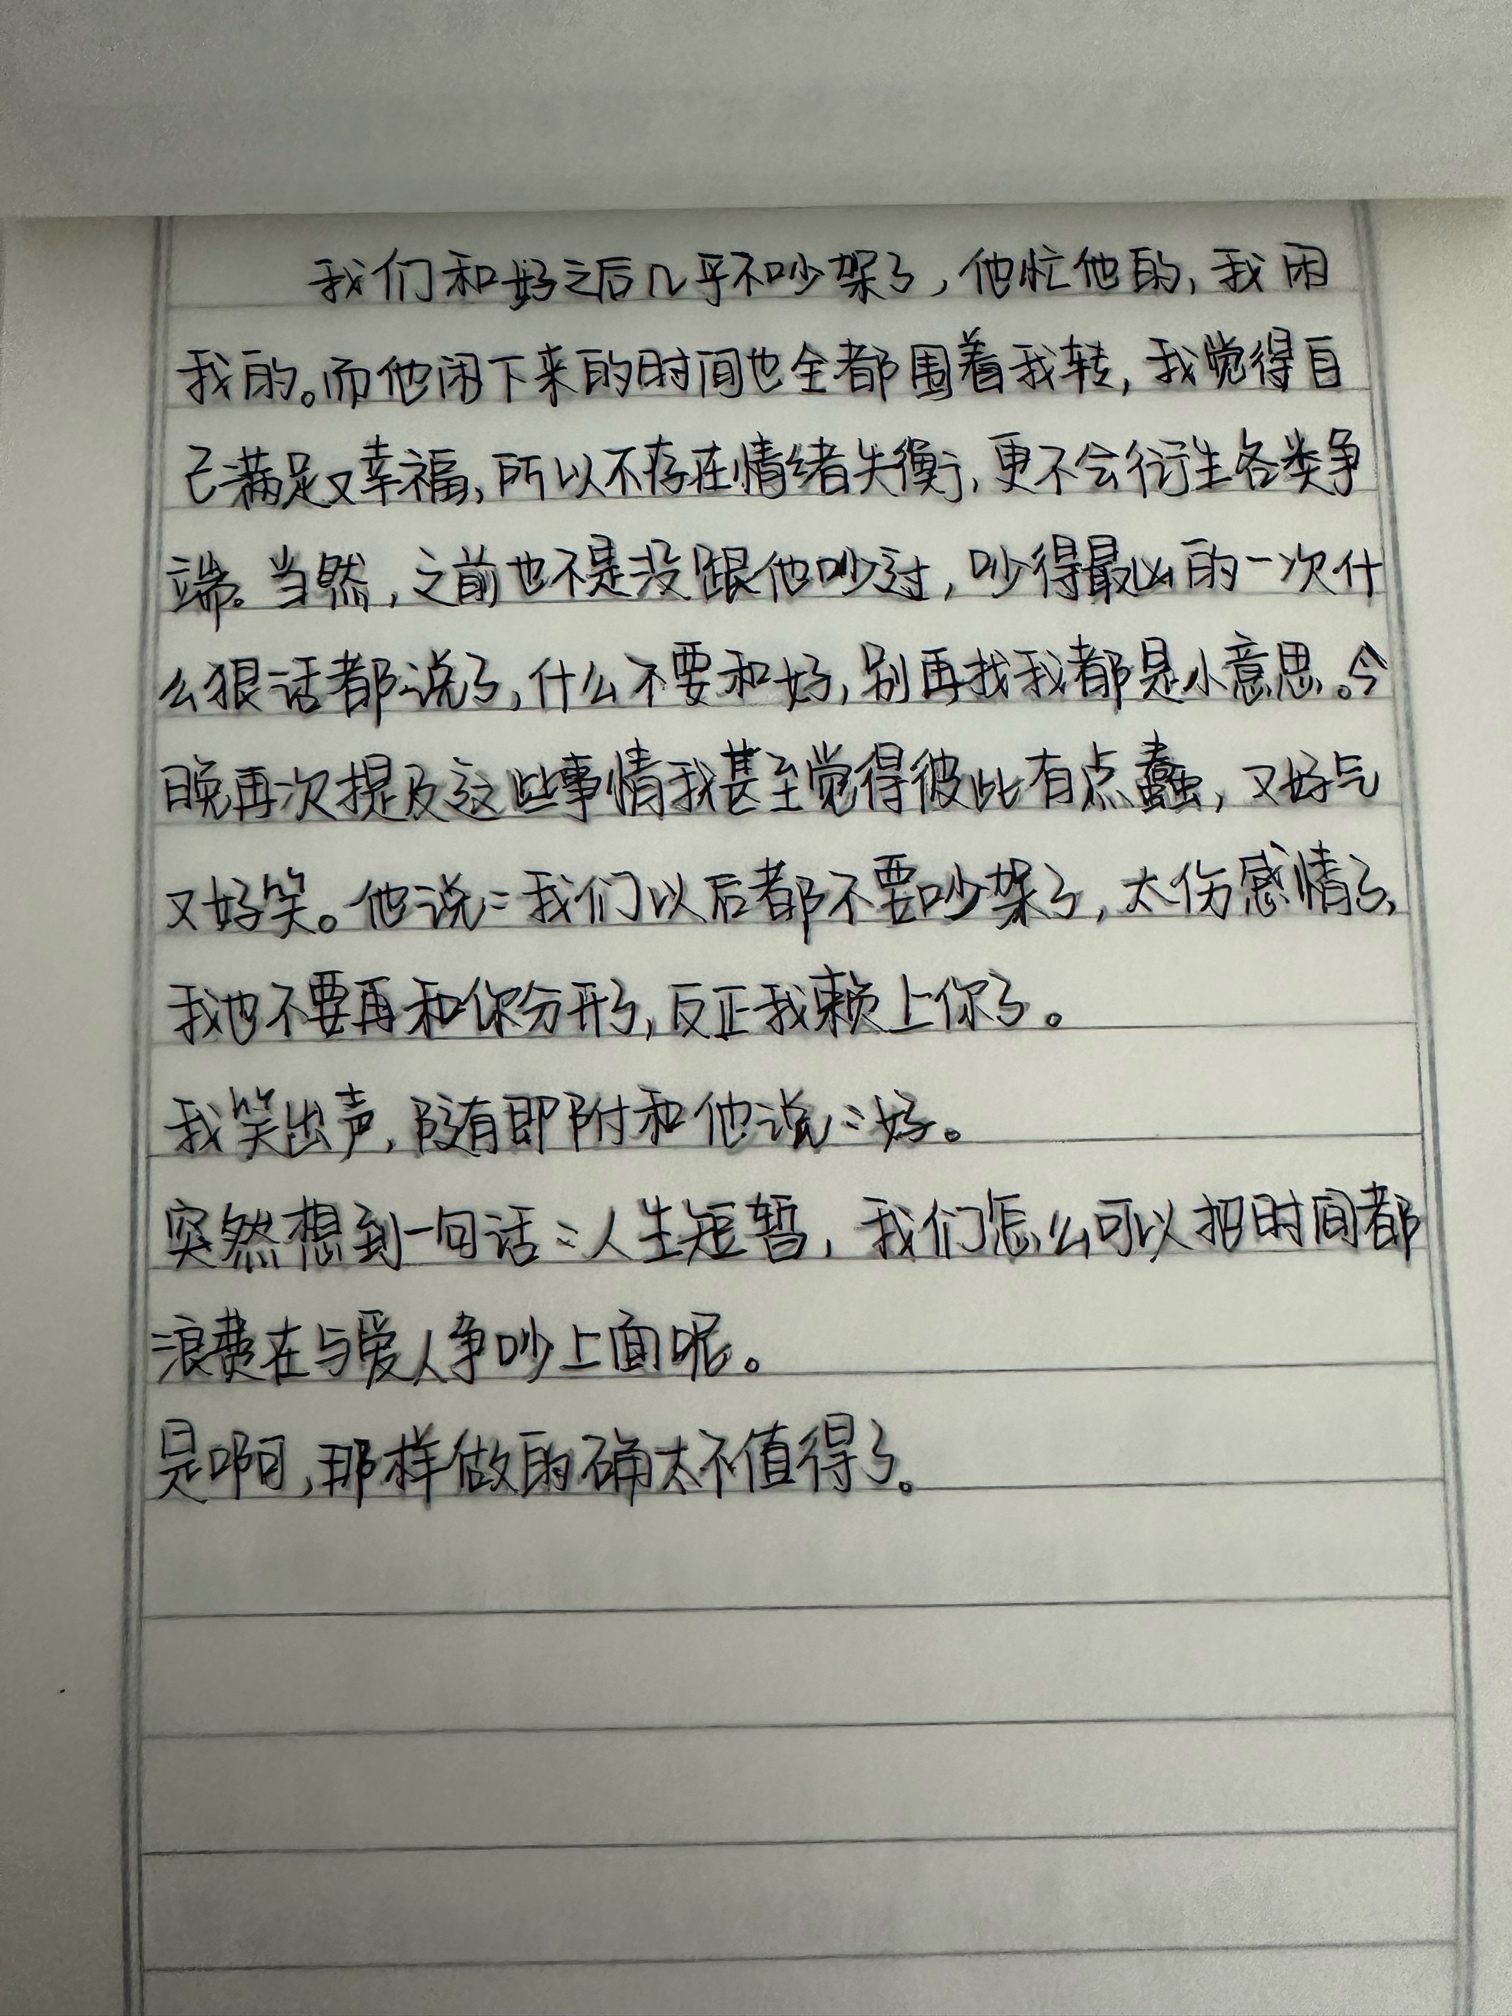 我们和好之后几乎不吵架了，他忙他的，我闲
我的。而他闲下来的时间也全都围着我转，我觉得自
己满足又幸福，所以不存在情绪失衡，更不会衍生各类争
端。当然，之前也不是没跟他吵过，吵得最凶的一次什
么狠话都说了，什么不要和好，别再找我都是小意思。今
晚再次提及这些事情我甚至觉得彼此有点蠢，又好气
又好笑。他说：我们以后都不要吵架了，太伤感情了，
我也不要再和你分开了，反正我赖上你了。
我笑出声，随即附和他说：好。
突然想到一句话：人生短暂，我们怎么可以把时间都
浪费在与爱人争吵上面呢。
是啊，那样做的确太不值得了。